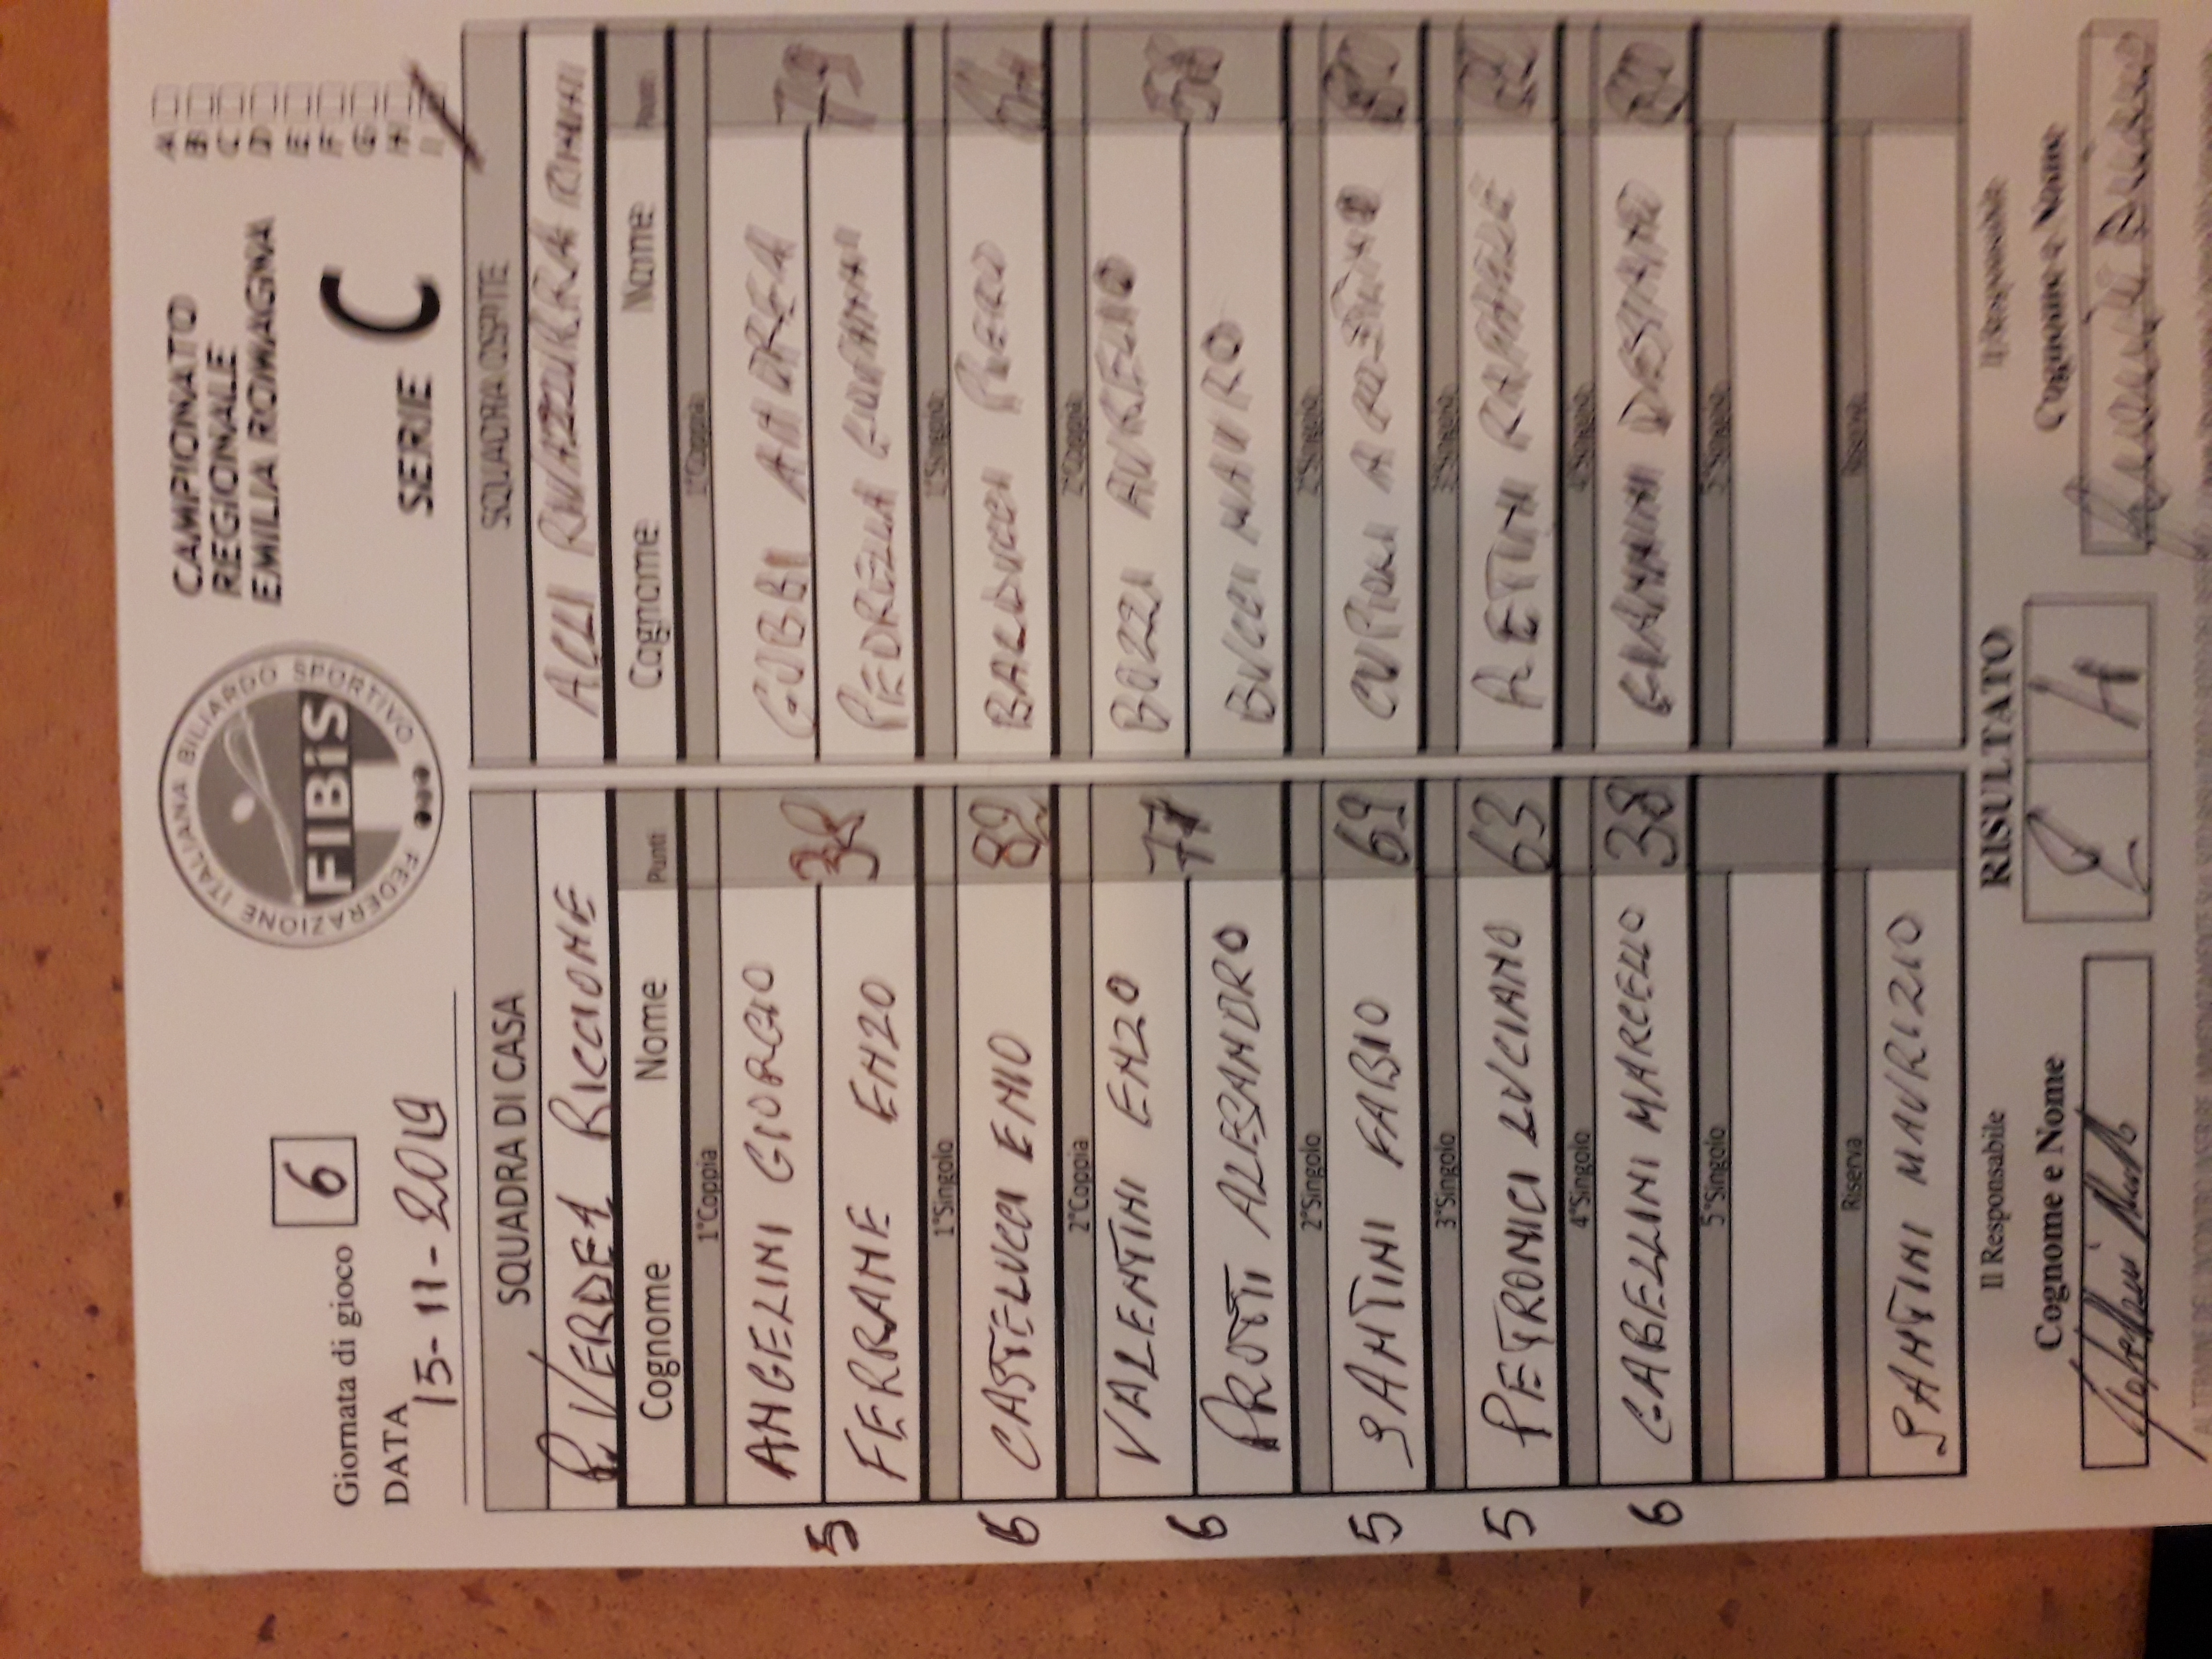 Giornata di gioco 6
DATA
15-11-2019
FEDERAZIONE ITALIANA BILIARDO SPORTIVO
FIBiS
CAMPIONATO
REGIONALE
EMILIA ROMAGNA
SERIE C
A
B
C
D
E
F
G
H
I
SQUADRA DI CASA
P. VERDEA RICCIONE
Cognome Nome Punti
1°Coppia
ANGELINI GIORGIO
5 38
FERRANE ENZO
1°Singolo
6 CASTELUCCI ENIO 82
2°Coppia
VALENTINI ENZO
6 77
PROTTI ALESSANDRO
2°Singolo
5 SANTINI FABIO 69
3°Singolo
5 PETRONICI LUCIANO 63
4°Singolo
6 GABELLINI MARCELLO 38
5°Singolo
Riserva
SANTINI MAURIZIO
SQUADRA OSPITE
ACLI RIVAZZURRA RIMINI
Cognome Nome Punti
1°Coppia
GOBBI ANDREA
79
PEDRELLI GIOVANNI
1°Singolo
BALDUCCI PIERO
2°Coppia
BOZZI AURELIO
BUCCI MAURO
2°Singolo
CUPIOLI 80
3°Singolo
PETTINI RAFFAELE 82
4°Singolo
GIANNINI 80
5°Singolo
Riserva
Il Responsabile
Cognome e Nome
RISULTATO
2 4
Il Responsabile
Cognome e Nome